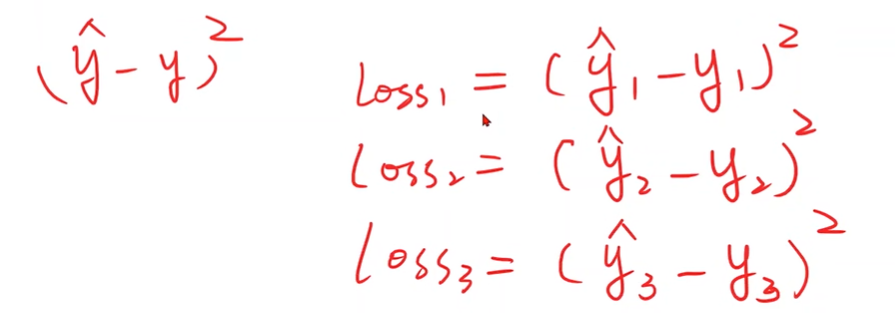 (ŷ - y)²
loss₁ = (ŷ₁ - y₁)²
loss₂ = (ŷ₂ - y₂)²
loss₃ = (ŷ₃ - y₃)²